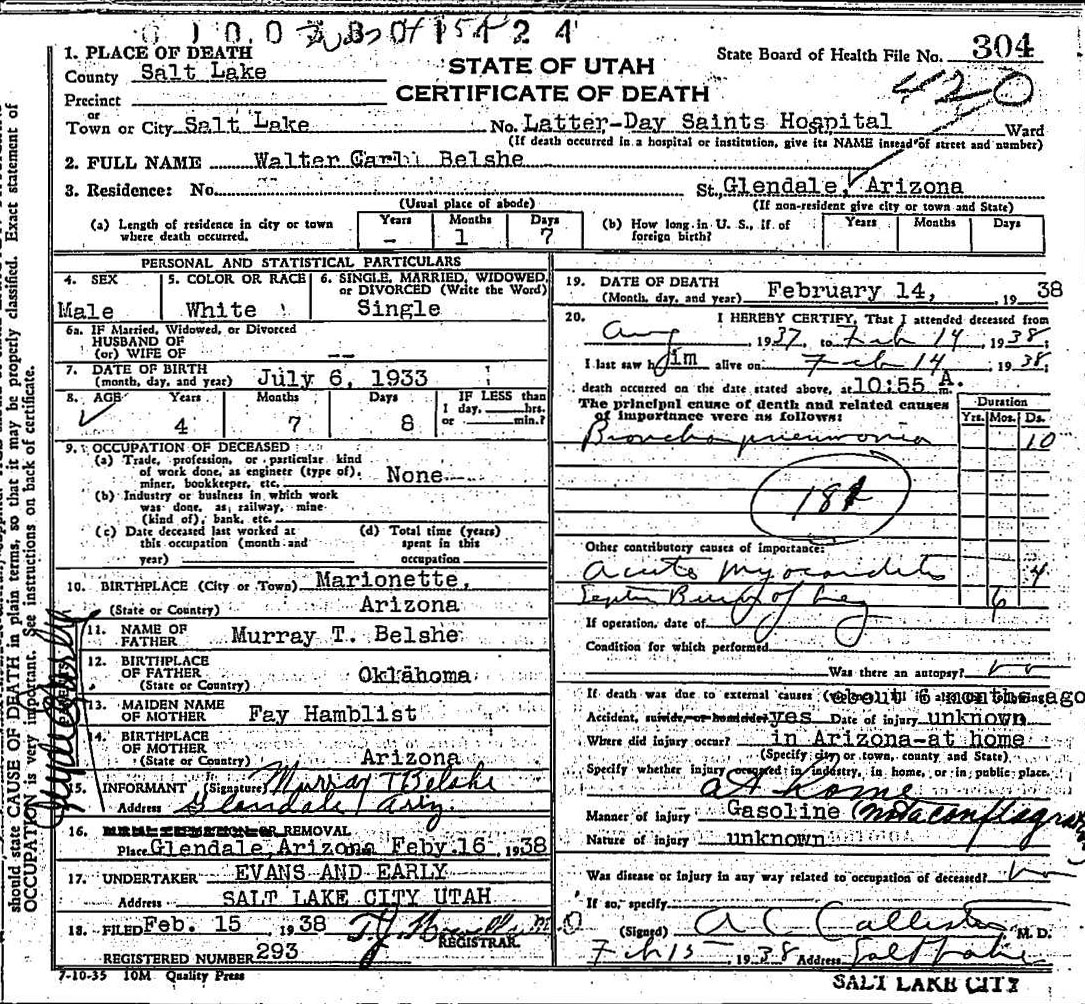 State Board of Health File No. 304
1. PLACE OF DEATH
County Salt Lake
STATE OF UTAH
CERTIFICATE OF DEATH
420
Precinct
or
Town or City Salt Lake No. Latter-Day Saints Hospital St., Ward
(If death occurred in a hospital or institution, give its NAME instead of street and number)
2. FULL NAME Walter Carl Belshe
3. Residence: No. St. Glendale, Arizona
(Usual place of abode) (If non-resident give city or town and State)
(a) Length of residence in city or town where death occurred. Years - Months 1 Days 7
(b) How long in U. S., if of foreign birth? Years Months Days
PERSONAL AND STATISTICAL PARTICULARS
4. SEX Male
5. COLOR OR RACE White
6. SINGLE, MARRIED, WIDOWED, or DIVORCED (Write the Word) Single
6a. IF Married, Widowed, or Divorced
HUSBAND OF
(or) WIFE OF --
7. DATE OF BIRTH
(month, day, and year) July 6, 1933
8. AGE Years 4 Months 7 Days 8 IF LESS than 1 day, hrs. or min.?
9. OCCUPATION OF DECEASED
(a) Trade, profession, or particular kind
of work done, as engineer (type of),
miner, bookkeeper, etc. None
(b) Industry or business in which work
was done, as, railway, mine
(kind of), bank, etc.
(c) Date deceased last worked at
this occupation (month and
year)
(d) Total time (years)
spent in this
occupation
10. BIRTHPLACE (City or Town) Marionette,
(State or Country) Arizona
11. NAME OF FATHER Murray T. Belshe
12. BIRTHPLACE OF FATHER
(State or Country) Oklahoma
13. MAIDEN NAME OF MOTHER Fay Hamblist
14. BIRTHPLACE OF MOTHER
(State or Country) Arizona
15. INFORMANT (Signature) Murray T Belshe
Address Glendale Ariz.
16. REMOVAL
Place Glendale, Arizona Feby. 16 1938
17. UNDERTAKER EVANS AND EARLY
Address SALT LAKE CITY UTAH
18. FILED Feb. 15 1938
REGISTRAR.
REGISTERED NUMBER 293
7-10-35 10M Quality Press
19. DATE OF DEATH
(Month, day, and year) February 14, 1938
20. I HEREBY CERTIFY, That I attended deceased from
Aug 1937, to Feb 14, 1938;
I last saw him alive on Feb 14 1938;
death occurred on the date stated above, at 10:55 A. m.
The principal cause of death and related causes
of importance were as follows:
Duration
Yrs. Mos. Ds.
Broncho pneumonia 10
181
Other contributory causes of importance:
Acute myocarditis 4
Burn of leg 6
If operation, date of
Condition for which performed
Was there an autopsy? no
If death was due to external causes about 6 months ago
Accident, suicide, or homicide yes Date of injury unknown
Where did injury occur? in Arizona-at home
(Specify city or town, county and State)
Specify whether injury occurred in industry, in home, or in public place.
at home
Manner of injury Gasoline (not a conflagration)
Nature of injury unknown
Was disease or injury in any way related to occupation of deceased? no
If so, specify
(Signed) A C Callister M. D.
Feb 15 1938 Address Salt Lake
SALT LAKE CITY
should state CAUSE OF DEATH in plain terms, so that it may be properly classified. Exact statement of
OCCUPATION is very important. See instructions on back of certificate.